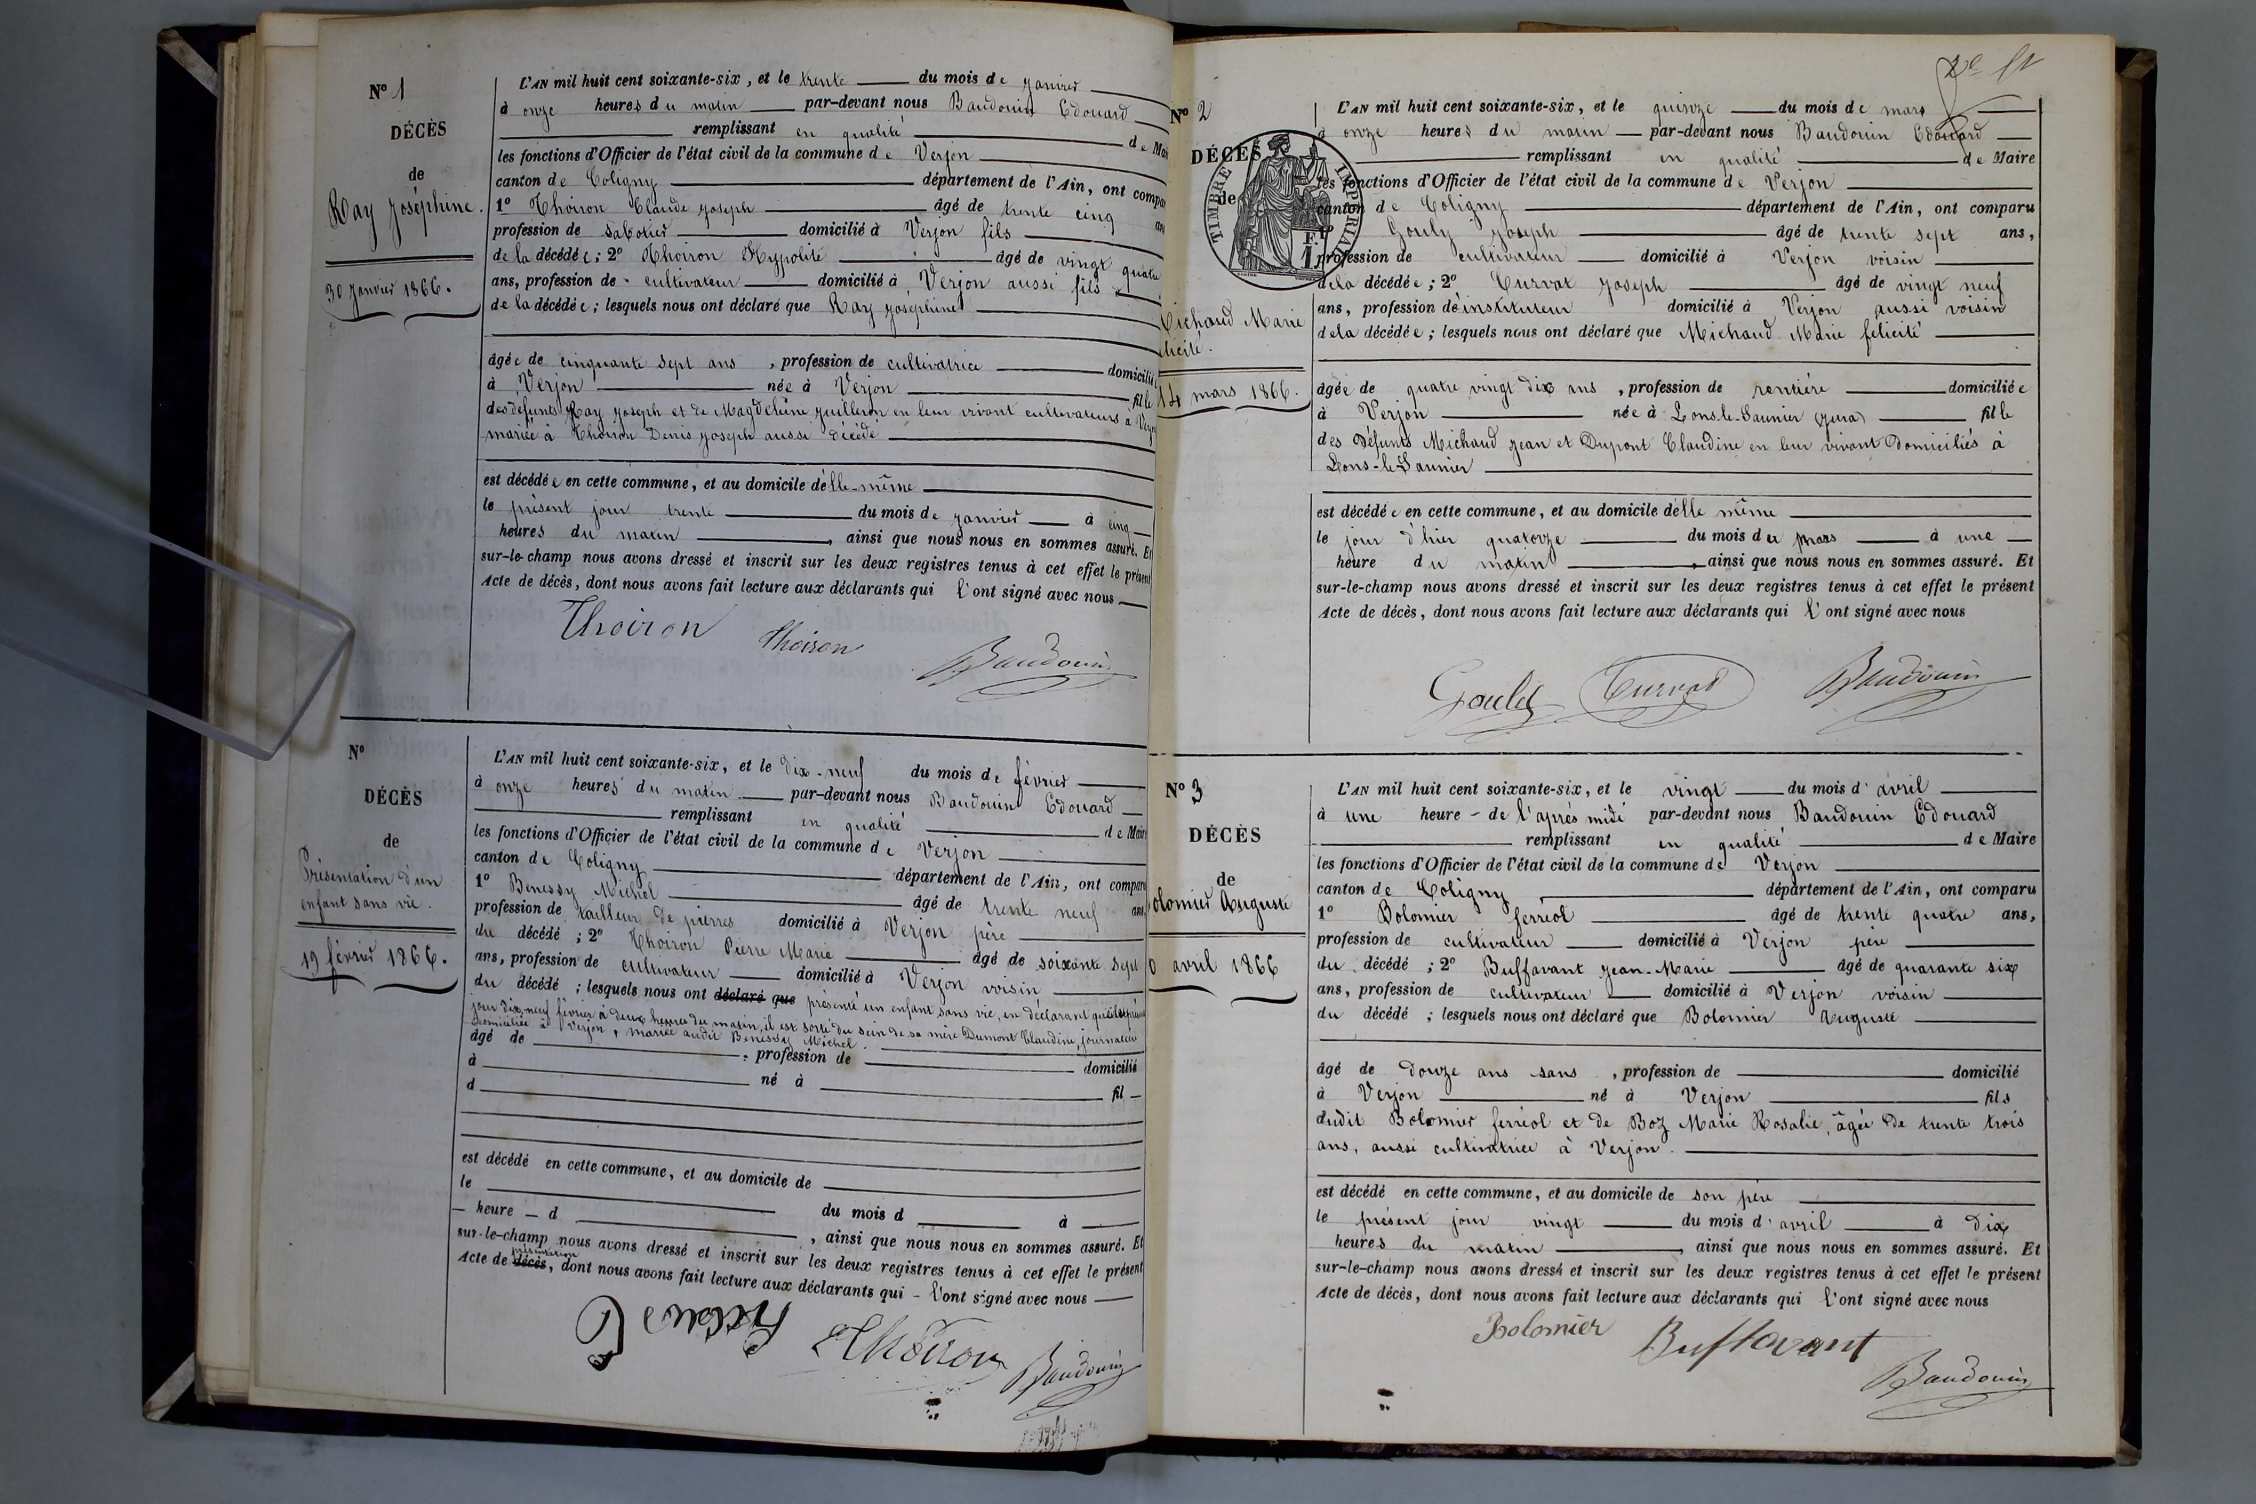 N° 1
DÉCÈS
de
Ray Joséphine.
30 Janvier 1866.
L'AN mil huit cent soixante-six, et le trente du mois de Janvier
à onze heures du matin par-devant nous Baudouin Edouard
remplissant en qualité de Mai
les fonctions d'Officier de l'état civil de la commune de Verjon
canton de Coligny département de l'Ain, ont compa
1° Thoiron Claude Joseph âgé de trente cinq an
profession de sabotier domicilié à Verjon fils
de la décédée; 2° Thoiron Hypolite âgé de vingt quatre
ans, profession de cultivateur domicilié à Verjon aussi fils
de la décédée; lesquels nous ont déclaré que Ray Joséphine
âgée de cinquante sept ans, profession de cultivatrice domicilié
à Verjon née à Verjon fille
des défunts Ray Joseph et de Magdeleine Guilleron en leur vivant cultivateurs à Verj
mariée à Thoiron Denis Joseph aussi décédé
est décédée en cette commune, et au domicile d'elle-même
le présent jour trente du mois de Janvier à cinq
heures du matin, ainsi que nous nous en sommes assuré. Et
sur-le-champ nous avons dressé et inscrit sur les deux registres tenus à cet effet le présent
Acte de décès, dont nous avons fait lecture aux déclarants qui l'ont signé avec nous
Thoiron Thoiron Baudouin
N°
DÉCÈS
de
Présentation d'un
enfant sans vie.
19 février 1866.
L'AN mil huit cent soixante-six, et le dix-neuf du mois de février
à onze heures du matin par-devant nous Baudouin Edouard
remplissant en qualité de Maire
les fonctions d'Officier de l'état civil de la commune de Verjon
canton de Coligny département de l'Ain, ont comparu
1° Benessy Michel âgé de trente neuf ans,
profession de tailleur de pierres domicilié à Verjon père
du décédé; 2° Thoiron Pierre Marie âgé de soixante sept
ans, profession de cultivateur domicilié à Verjon voisin
du décédé; lesquels nous ont déclaré que présenté un enfant sans vie, en déclarant que
jour dix-neuf février à deux heures du matin, il est sorti du sein de sa mère Dumont Claudine, journalière
domiciliée à Verjon, mariée audit Benessy Michel.
âgé de , profession de domicilié
à né à fil
d
est décédé en cette commune, et au domicile de
le du mois d à
heure d , ainsi que nous nous en sommes assuré. Et
sur-le-champ nous avons dressé et inscrit sur les deux registres tenus à cet effet le présent
présentation
Acte de décès, dont nous avons fait lecture aux déclarants qui l'ont signé avec nous
Thoiron Baudouin
N° 2
DÉCÈS
de
TIMBRE IMPERIAL
1 F.
Michaud Marie
élicité.
14 mars 1866.
L'AN mil huit cent soixante-six, et le quinze du mois de mars
à onze heures du matin par-devant nous Baudouin Edouard
remplissant en qualité de Maire
les fonctions d'Officier de l'état civil de la commune de Verjon
canton de Coligny département de l'Ain, ont comparu
1° Gouly Joseph âgé de trente sept ans,
profession de cultivateur domicilié à Verjon voisin
de la décédée; 2° Curvat Joseph âgé de vingt neuf
ans, profession de instituteur domicilié à Verjon aussi voisin
de la décédée; lesquels nous ont déclaré que Michaud Marie félicité
âgée de quatre vingt dix ans, profession de rentière domiciliée
à Verjon née à Lons-le-Saunier (Jura) fille
des défunts Michaud Jean et Dupont Claudine en leur vivant domiciliés à
Lons-le-Saunier
est décédée en cette commune, et au domicile d'elle même
le jour d'hier quatorze du mois de mars à une
heure du matin, ainsi que nous nous en sommes assuré. Et
sur-le-champ nous avons dressé et inscrit sur les deux registres tenus à cet effet le présent
Acte de décès, dont nous avons fait lecture aux déclarants qui l'ont signé avec nous
Gouly Curvat Baudouin
N° 3
DÉCÈS
de
olomier Auguste
0 avril 1866
L'AN mil huit cent soixante-six, et le vingt du mois d'avril
à une heure de l'après midi par-devant nous Baudouin Edouard
remplissant en qualité de Maire
les fonctions d'Officier de l'état civil de la commune de Verjon
canton de Coligny département de l'Ain, ont comparu
1° Bolomier ferréol âgé de trente quatre ans,
profession de cultivateur domicilié à Verjon père
du décédé; 2° Buffavant Jean-Marie âgé de quarante six
ans, profession de cultivateur domicilié à Verjon voisin
du décédé; lesquels nous ont déclaré que Bolomier Auguste
âgé de douze ans sans, profession de domicilié
à Verjon né à Verjon fils
dudit Bolomier ferréol et de Boz Marie Rosalie, âgée de trente trois
ans, aussi cultivatrice à Verjon.
est décédé en cette commune, et au domicile de son père
le présent jour vingt du mois d'avril à dix
heures du matin, ainsi que nous nous en sommes assuré. Et
sur-le-champ nous avons dressé et inscrit sur les deux registres tenus à cet effet le présent
Acte de décès, dont nous avons fait lecture aux déclarants qui l'ont signé avec nous
Bolomier Buffavant Baudouin